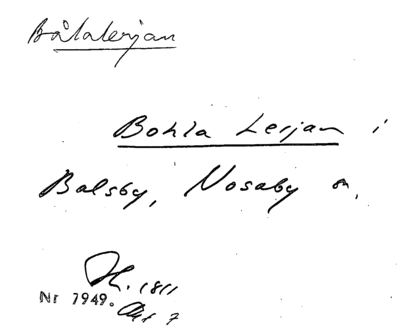 Bålalerjan
Bohla Lerjan i
Balsby, Nosaby sn.
H. 1811
Nr 7949. Akt 7